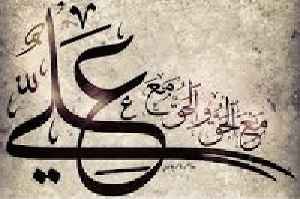 علي مع الحق و الحق مع علي